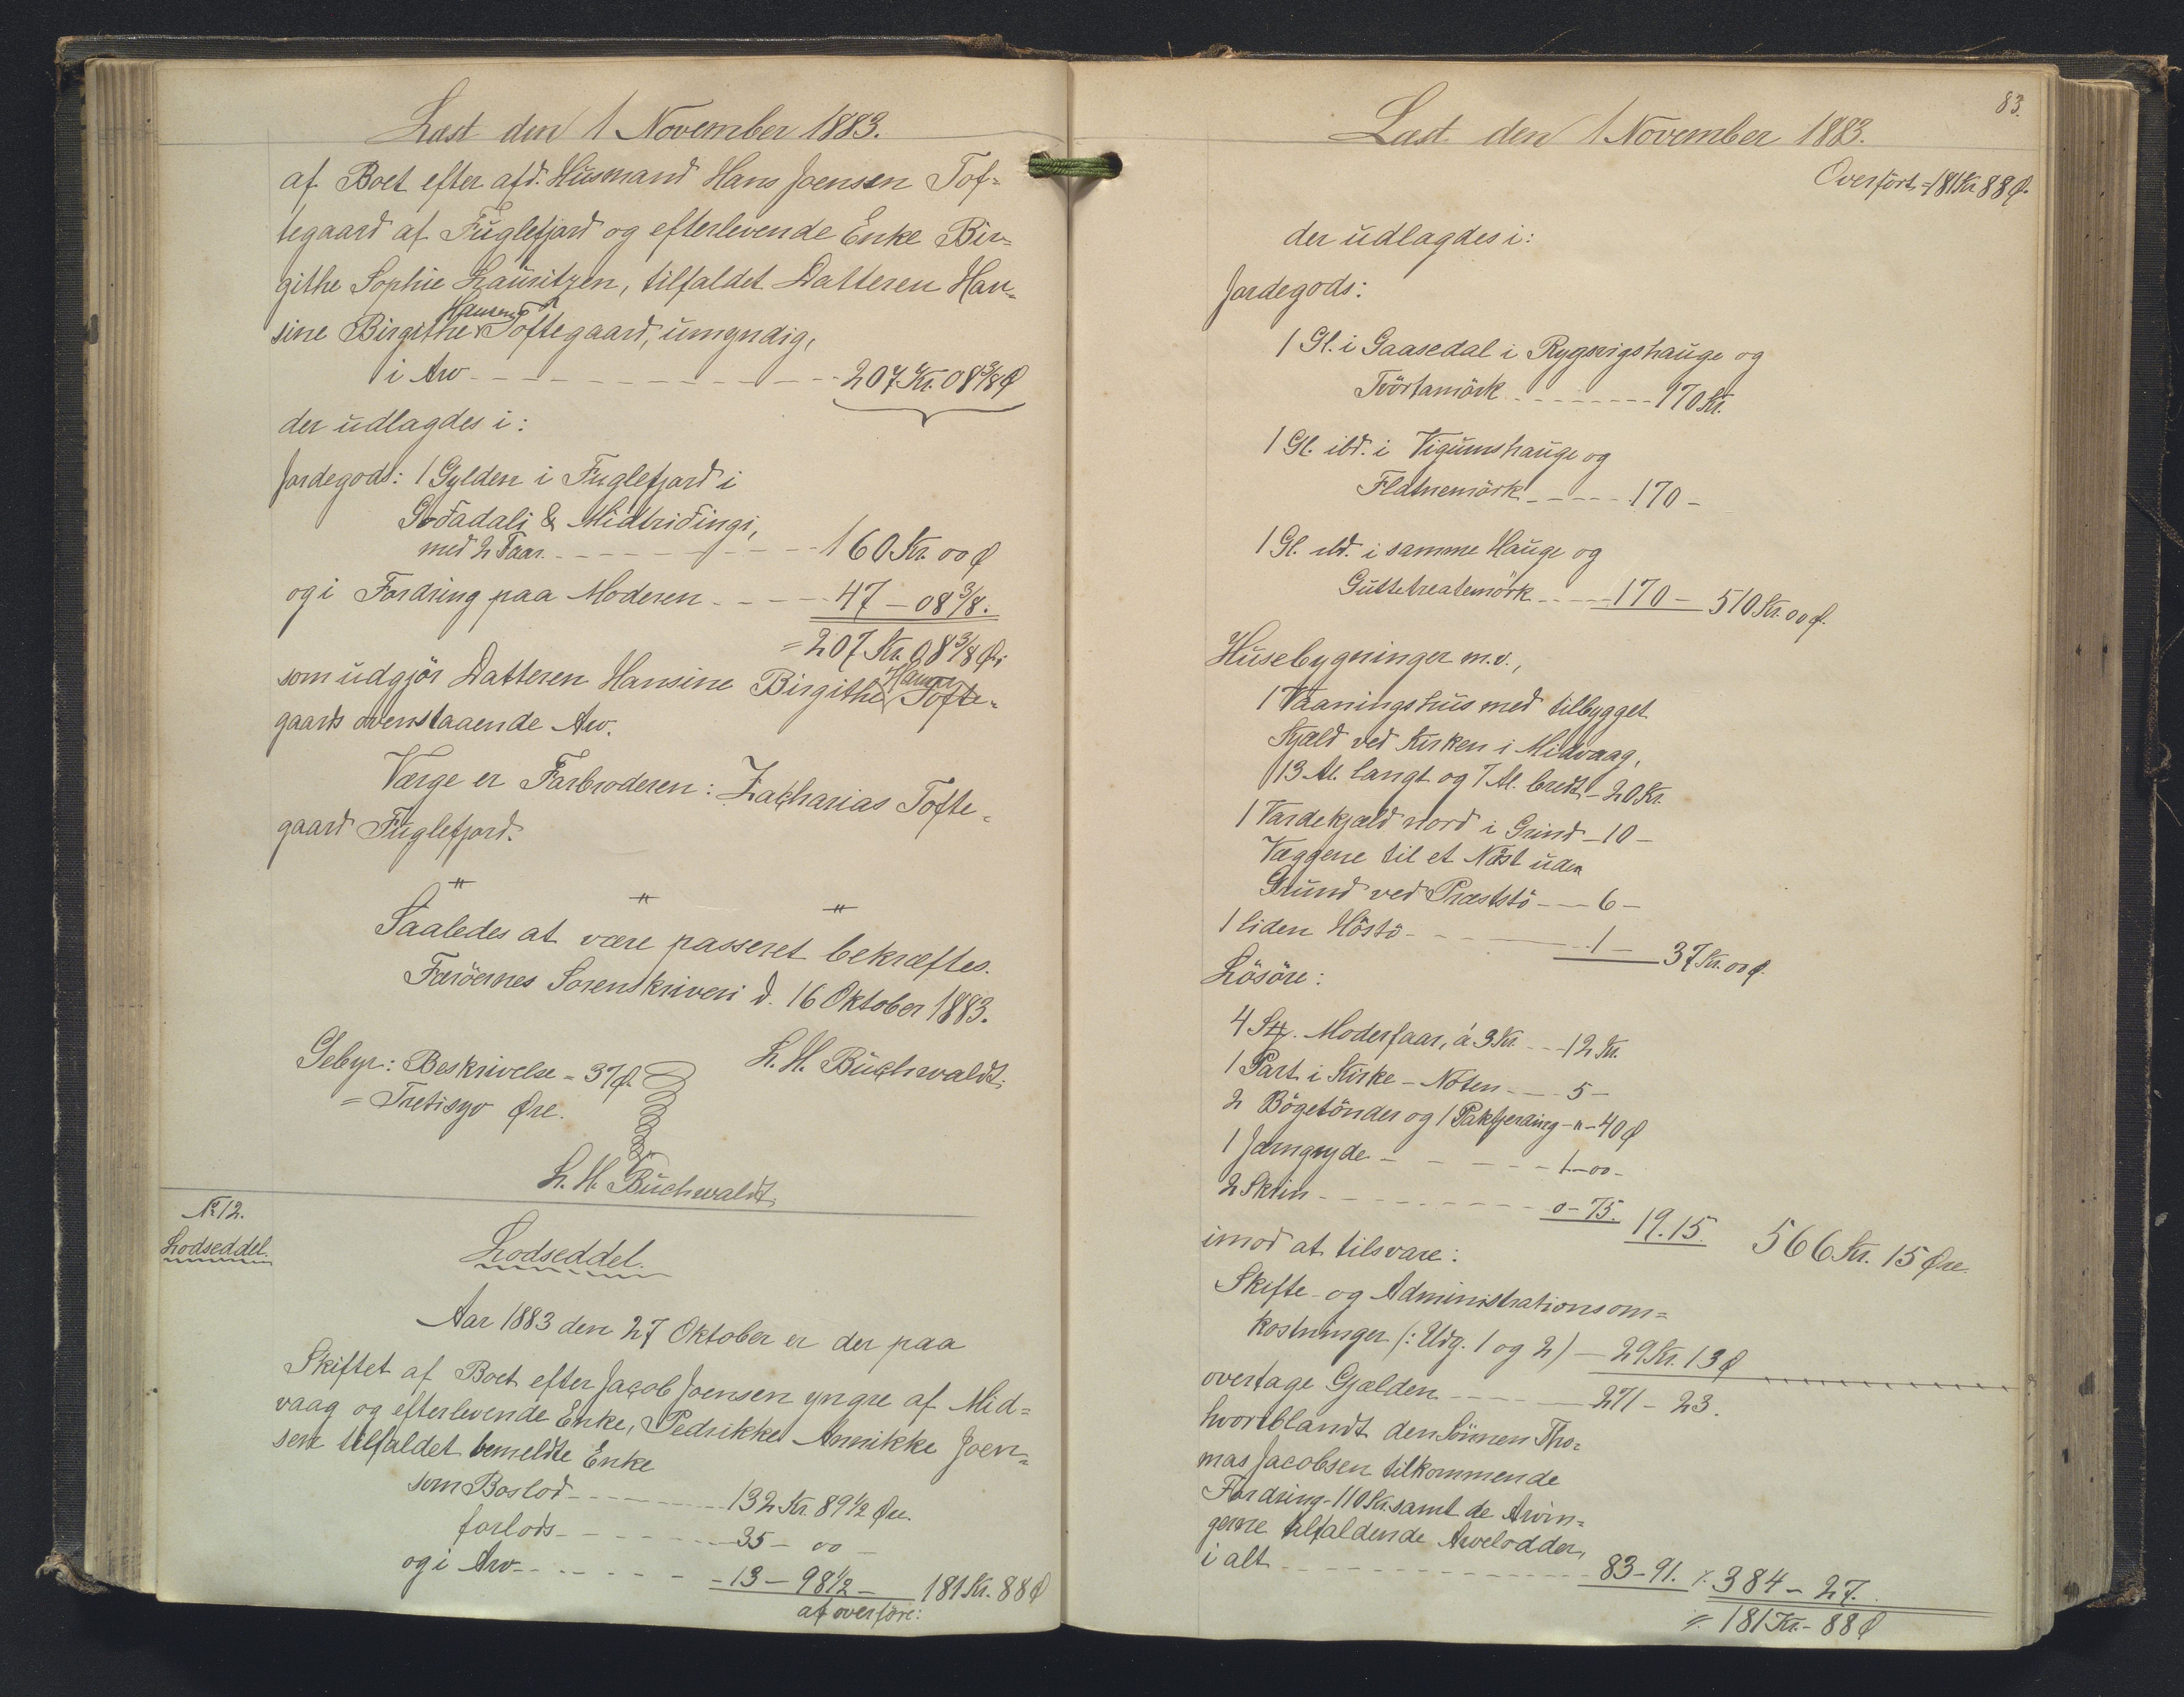 Læst den 1 November 1883.
af Boet efter afd. Husmand Hans Joensen Tof-
tegaard af Fuglefjord og efterlevende Enke Bir-
githe Sophie Lauritzen, tilfaldet Datteren Han-
sine Birgithe Hansen Toftegaard, umyndig,
i Arv - - - 207 Kr. 08 3/8 Ø
der udlagdes i:
Jordegods: 1 Gylden i Fuglefjord i
Gođadali & Midtriđingi,
med 2 Faar - - - 160 Kr. 00 Ø
og i Fordring paa Moderen - - - 47 - 08 3/8.
= 207 Kr. 08 3/8 Ø.
som udgjör Datteren Hansine Birgithe Hansen Tofte-
gaards ovenstaaende Arv.
Værge er Farbroderen: Zacharias Tofte-
gaard Fuglefjord.
" " "
Saaledes at være passeret bekræftes.
Færöernes Sorenskriveri d. 16 Oktober 1883.
L. H. Buchwaldt.
Gebyr: Beskrivelse = 37 Ø.
= Tretisyv Øre.
L. H. Buchwaldt.
№ 12.
Lodseddel.
Lodseddel.
Aar 1883 den 27 Oktober er der paa
Skiftet af Boet efter Jacob Joensen yngre af Mid-
vaag og efterlevende Enke, Pedrikke Annikke Joen-
sen tilfaldet bemeldte Enke
som Boslod - - - 132 Kr. 89 1/2 Øre.
forlods - - - 35 - 00 -
og i Arv - - - 13 - 98 1/2 - 181 Kr. 88 Ø
at overföre:
83.
Læst den 1 November 1883.
Overfört = 181 Kr 88 Ø.
der udlagdes i:
Jordegods:
1 Gl. i Gaasedal i Rygsvigshauge og
Tvörtamörk - - - 170 Kr.
1 Gl. ibd. i Vigumshauge og
Flatnemörk - - - 170 -
1 Gl. ibd. i samme Hauge og
Guttetreatemörk - - - 170 - 510 Kr. 00 Ø.
Husebygninger m.v.,
1 Vaaningshus med tilbygget
Kjæld ved Kirken i Midvaag,
13 Al. langt og 7 Al. bredt - 20 Kr.
1 Vardekjæld nord i Grind - 10 -
Væggene til et Nöst uden
Grund ved Præststö - - 6 -
1 liden Höstö - - - 1 - 37 Kr. 00 Ø.
Lösöre:
4 Stk. Moderfaar, á 3 Kr. - - 12 Kr.
1 Part i Kirke-Noten - - 5 -
2 Bögetönder og 1 Pakfjerding - " - 40 Ø
1 Jerngryde - - - 1 - 00 -
2 Skrin - - - 0 - 75. 19.15. 566 Kr. 15 Øre.
imod at tilsvare:
Skifte- og Administrationsom-
kostninger (: Udg. 1 og 2) - 29 Kr. 13 Ø
overtage Gjælden - - - 271 - 23.
hvoriblandt den Sönnen Tho-
mas Jacobsen tilkommende
Fordring - 110 Kr. samt de Arvin-
gerne tilfaldende Arvelodder,
i alt - - - 83 - 91. ⁒ 384 - 27.
⁒ 181 Kr. - 88 Ø